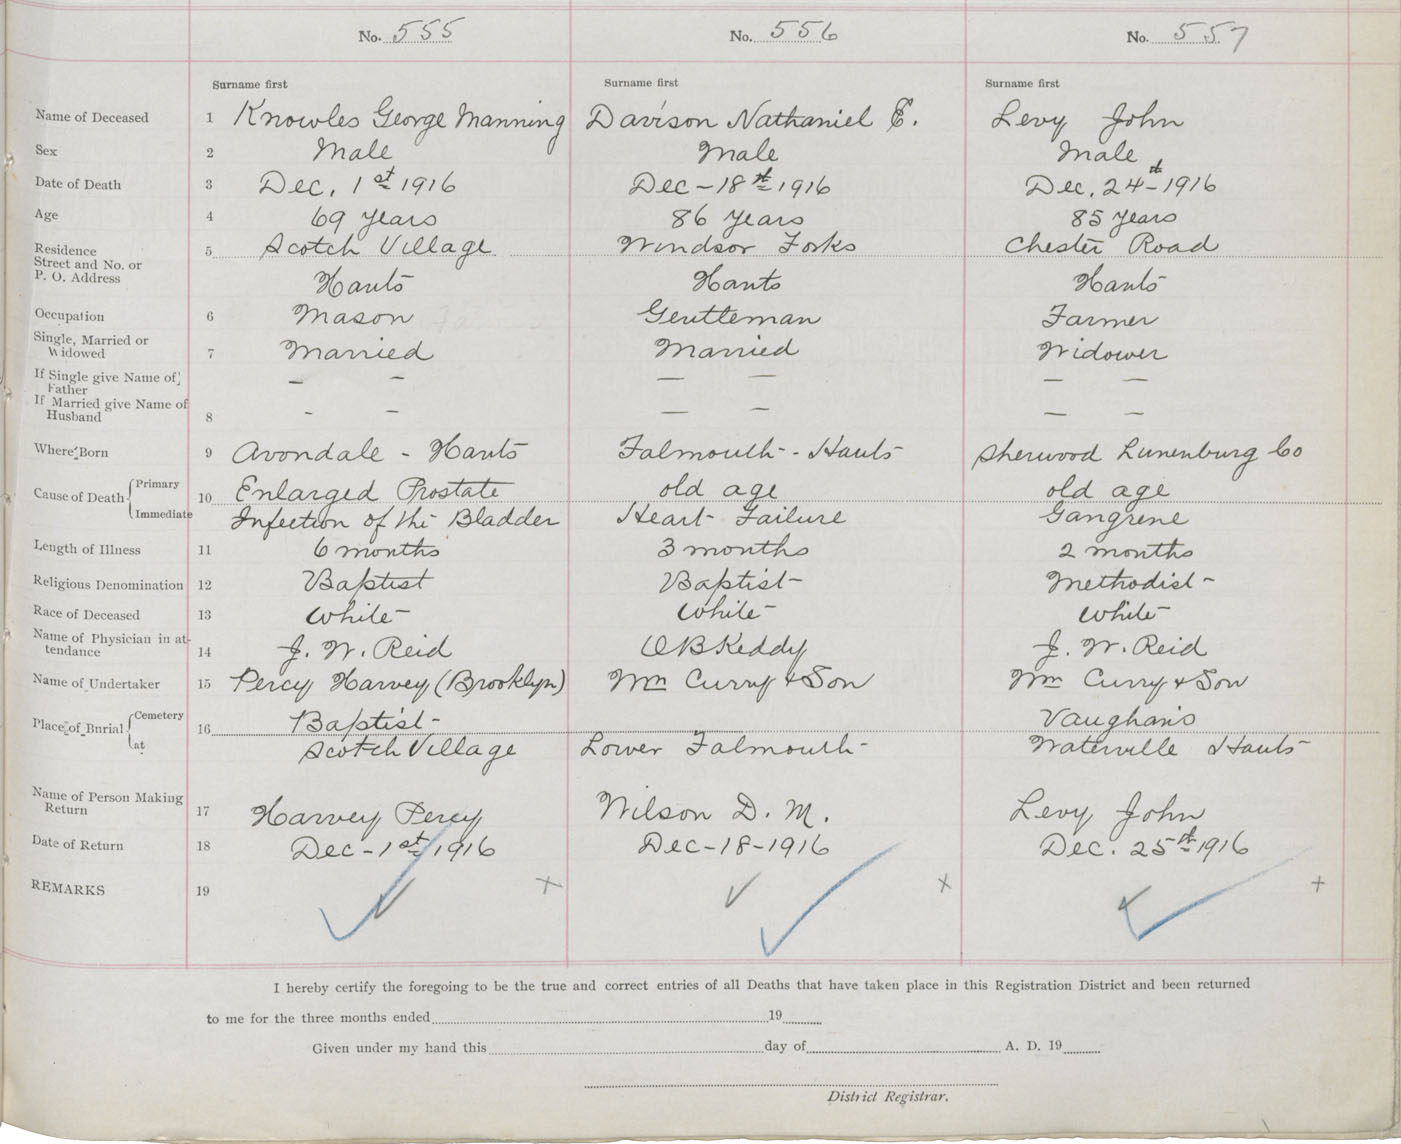 No. 555 No. 556 No. 557
Surname first Surname first Surname first
Name of Deceased 1 Knowles George Manning Davison Nathaniel E. Levy John
Sex 2 Male Male Male
Date of Death 3 Dec. 1st 1916 Dec - 18th 1916 Dec. 24th 1916
Age 4 69 years 86 years 85 years
Residence Street and No. or P. O. Address 5 Scotch Village Windsor Forks Chester Road
Hants Hants Hants
Occupation 6 Mason Gentleman Farmer
Single, Married or Widowed 7 Married Married Widower
If Single give Name of Father - - — — — —
If Married give Name of Husband 8 - - — — — —
Where Born 9 Avondale - Hants Falmouth - Hants Sherwood Lunenburg Co
Cause of Death Primary 10 Enlarged Prostate old age old age
Immediate Infection of the Bladder Heart Failure Gangrene
Length of Illness 11 6 months 3 months 2 months
Religious Denomination 12 Baptist Baptist Methodist
Race of Deceased 13 White White White
Name of Physician in attendance 14 J. W. Reid O B Keddy J. W. Reid
Name of Undertaker 15 Percy Harvey (Brooklyn) Wm Curry & Son Wm Curry & Son
Place of Burial Cemetery 16 Baptist Vaughan's
at Scotch Village Lower Falmouth Waterville Hants
Name of Person Making Return 17 Harvey Percy Wilson D. M. Levy John
Date of Return 18 Dec - 1st 1916 Dec - 18 - 1916 Dec. 25th 1916
REMARKS 19
I hereby certify the foregoing to be the true and correct entries of all Deaths that have taken place in this Registration District and been returned
to me for the three months ended 19
Given under my hand this day of A. D. 19
District Registrar.